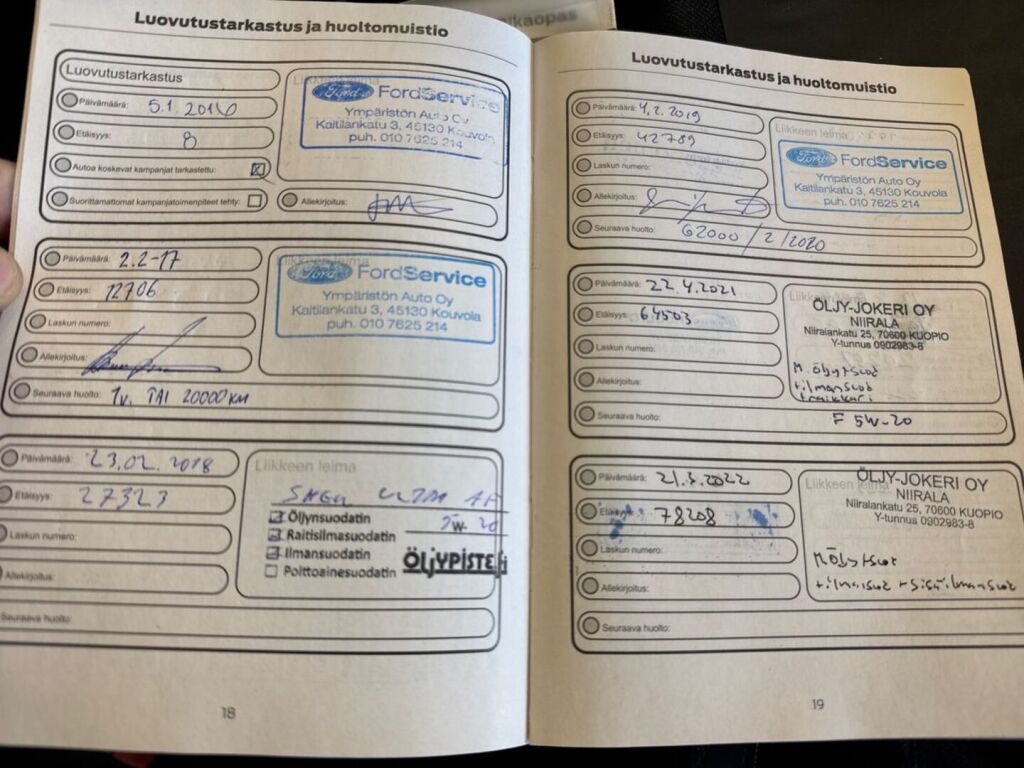 lkaopas
Luovutustarkastus ja huoltomuistio
Luovutustarkastus
Päivämäärä: 5.1.2016
Etäisyys: 8
Autoa koskevat kampanjat tarkastettu: X
Suorittamattomat kampanjatoimenpiteet tehty:
Liikkeen leima
Ford FordService
Ympäristön Auto Oy
Kaitilankatu 3, 45130 Kouvola
puh. 010 7625 214
Allekirjoitus:
Päivämäärä: 2.2-17
Etäisyys: 12706
Laskun numero:
Allekirjoitus:
Seuraava huolto: 1v. TAI 20000 KM
Liikkeen leima
Ford FordService
Ympäristön Auto Oy
Kaitilankatu 3, 45130 Kouvola
puh. 010 7625 214
Päivämäärä: 23.02.2018
Etäisyys: 27323
Laskun numero:
Allekirjoitus:
Seuraava huolto:
Liikkeen leima
SHELL ULTRA AF
5W-20
Öljynsuodatin
Raitisilmasuodatin
Ilmansuodatin
Polttoainesuodatin
ÖLJYPISTE.fi
18
Luovutustarkastus ja huoltomuistio
Päivämäärä: 4.2.2019
Etäisyys: 42789
Laskun numero:
Allekirjoitus:
Seuraava huolto: 62000/2/2020
Liikkeen leima
Ford FordService
Ympäristön Auto Oy
Kaitilankatu 3, 45130 Kouvola
puh. 010 7625 214
Päivämäärä: 22.4.2021
Etäisyys: 64503
Laskun numero:
Allekirjoitus:
Seuraava huolto: F 5W-20
Liikkeen leima
ÖLJY-JOKERI OY
NIIRALA
Niiralankatu 25, 70600 KUOPIO
Y-tunnus 0902983-8
M.öljy+suod
+ilmansuod
Päivämäärä: 21.3.2022
Etäisyys: 78208
Laskun numero:
Allekirjoitus:
Seuraava huolto:
Liikkeen leima
ÖLJY-JOKERI OY
NIIRALA
Niiralankatu 25, 70600 KUOPIO
Y-tunnus 0902983-8
MÖljy+suod
+ilmansuod +sisäilmansuod
19